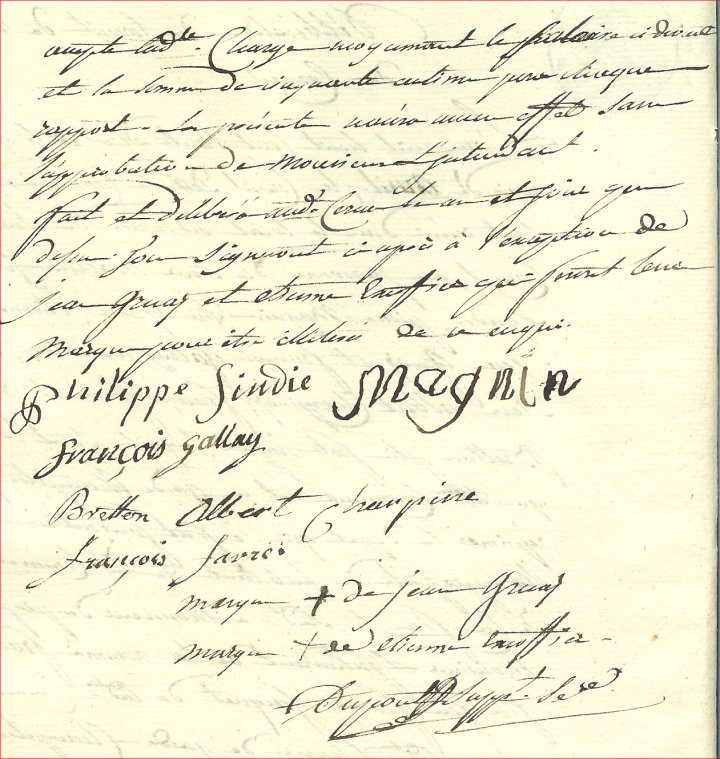 compte lad.te Charge moyennant le salaire ci dessus
et la somme de cinquante centimes pour chaque
rapport. La présente n'aura aucun effet sans
l'approbation de Monsieur l'Intendant.
fait et délibéré aud. les an et jour que
dessus. Se signeront ci après à l'exception de
jean Gruaz et etienne qui feront leur
Marque pour être illetérés de ce enquis.
Philippe Sindic Magnin
françois Gallay
Bretton Albert Charpine
françois favre
marque + de jean Gruaz
marque + de etienne
Dupont Suppt. Sre